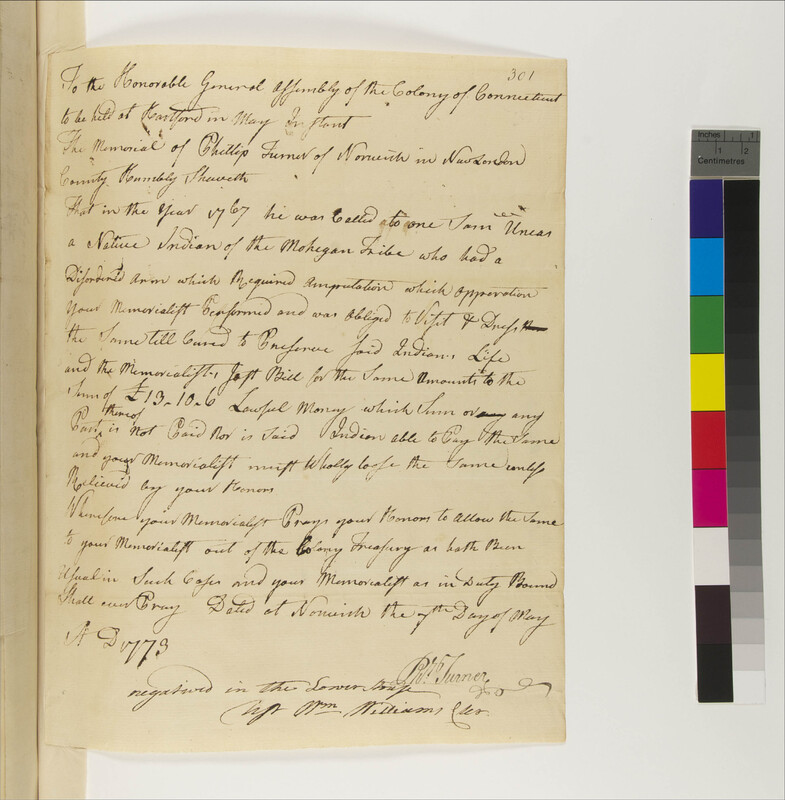 301
To the Honorable General Assembly of the Colony of Connecticut
to be held at Hartford in May Instant
The Memorial of Phillip Turner of Norwich in New London
County Humbly Sheweth
That in the Year 1767 he was Called to one Sam Uncas
a Native Indian of the Mohegan Tribe who had a
Disordered Arm which Required Amputation which opperation
Your Memorialist Performed and was Obliged to Visit & Dress
the Same till Cured to Preserve Said Indians Life
and the Memorialists Just Bill for the Same Amounts to the
Sum of £13-10-6 Lawful Money which Sum or any
Part thereof is Not Paid Nor is Said Indian able to Pay the Same
and your Memorialist must Wholly loose the Same unless
Relieved by your Honors
Wherefore your Memorialist Prays your Honors to Allow the Same
to your Memorialist out of the Colony Treasury as hath Been
Usual in Such Cases and your Memorialist as in Duty Bound
Shall ever Pray Dated at Norwich the 7th Day of May
A D 1773
Turner
negatived in the Lower House
Test Wm Williams Cler
Inches
1 2
Centimetres